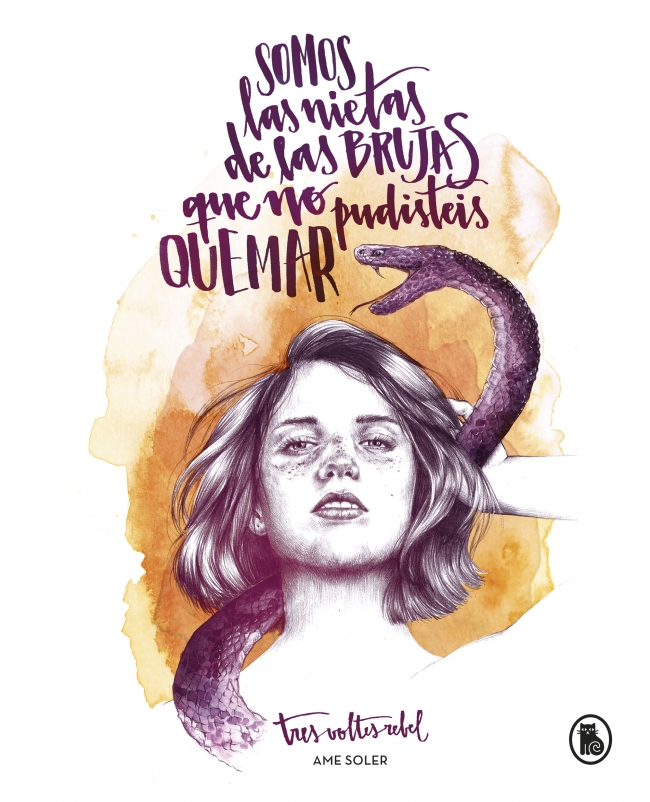 SOMOS
las nietas
de las BRUJAS
que no pudisteis
QUEMAR
tres voltes rebel
AME SOLER